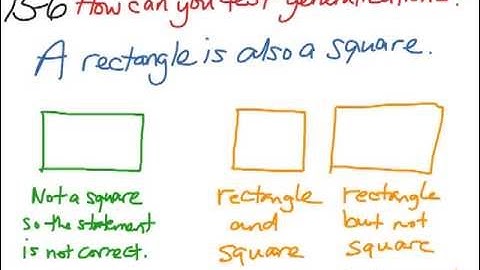 15-6 How can you test generalizations?
A rectangle is also a square.
Not a square
so the statement
is not correct.
rectangle
and
square
rectangle
but not
square